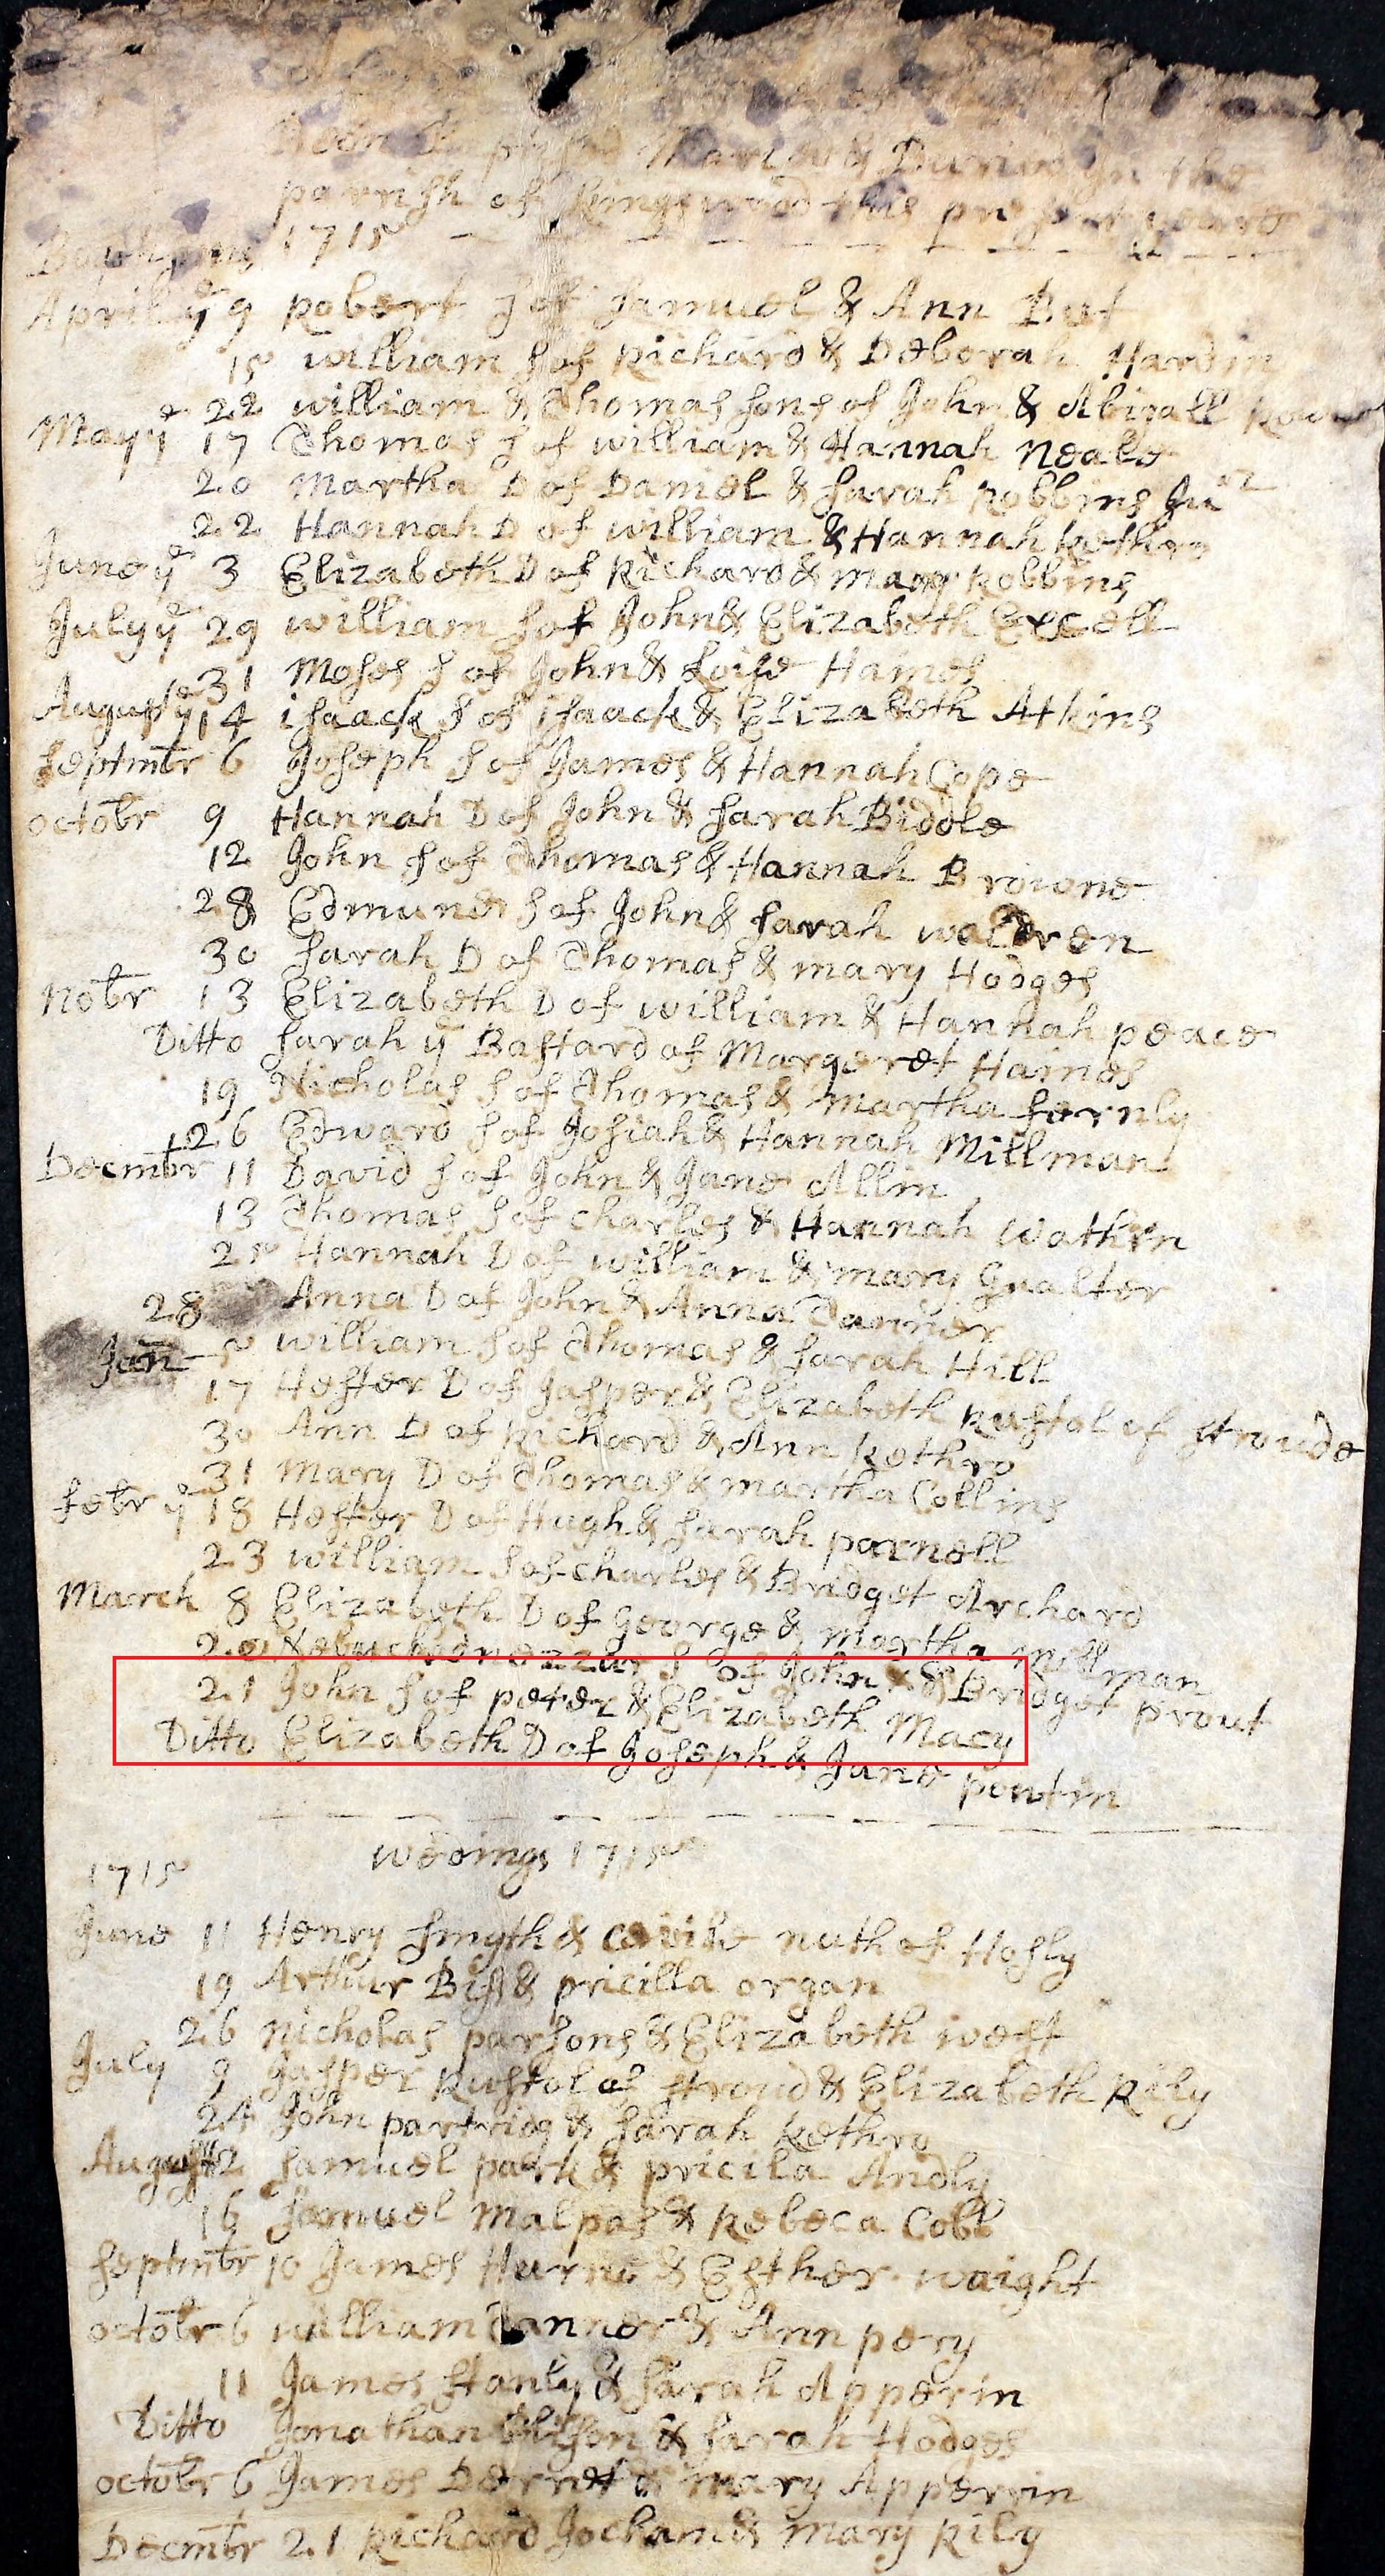 parish of Kingswood this present yeare
Baptisms 1715
April ye 9 Robert S of Samuel & Ann But
15 William S of Richard & Deborah Hardin
22 William & Thomas sons of John & Abigall
May ye 17 Thomas S of William & Hannah Neale
20 Martha D of Daniel & Sarah Robbins Jur
22 Hannah D of William & Hannah Kethro
June ye 3 Elizabeth D of Richard & Mary Robbins
July ye 29 William S of John & Elizabeth Excell
31 Moses S of John & Loise Haines
August ye 14 Isaack S of Isaack & Elizabeth Atkins
Septmbr 6 Joseph S of James & Hannah Cope
Octobr 9 Hannah D of John & Sarah Biddle
12 John S of Thomas & Hannah Browne
28 Edmund S of John & Sarah Waldren
30 Sarah D of Thomas & Mary Hodges
Nobr 13 Elizabeth D of William & Hannah peace
Ditto Sarah ye Bastard of Margeret Haines
19 Nicholas S of Thomas & Martha Fernly
26 Edward S of Josiah & Hannah Millman
Decmbr 11 David S of John & Jane Allin
13 Thomas S of Charles & Hannah Watkin
25 Hannah D of William & Mary Gualter
28 Anna D of John & Anna Tanner
Jan 5 William S of Thomas & Sarah Hill
17 Hester D of Jasper & Elizabeth Rustol of Stroude
30 Ann D of Richard & Ann Kethro
31 Mary D of Thomas & Martha Collins
Febr ye 18 Hester D of Hugh & Sarah parnell
23 William S of Charles & Bridget Archard
March 8 Elizabeth D of George & Martha Millman
20 Nebuchednezzar S of John & Bridget prout
21 John S of peter & Elizabeth Macy
Ditto Elizabeth D of Joseph & Jane pontin
Wedings 1715
1715
June 11 Henry Smyth & nuth of Hosly
19 Arthur Biss & pricilla organ
26 Nicholas parsons & Elizabeth West
July 9 Jasper Rustol of Stroud & Elizabeth Rily
24 John partridg & Sarah Kethro
August 2 Samuel park & pricila Andly
16 Samuel Malpas & Rebeca Cobb
Septmbr 10 James Hurne & Esther Waight
Octobr 6 William Tanner & Ann pery
11 James Stanly & Sarah Apperin
Ditto Jonathan & Sarah Hodges
Octobr 6 James & Mary Apperrin
Decmbr 21 Richard Jocham & Mary Rily